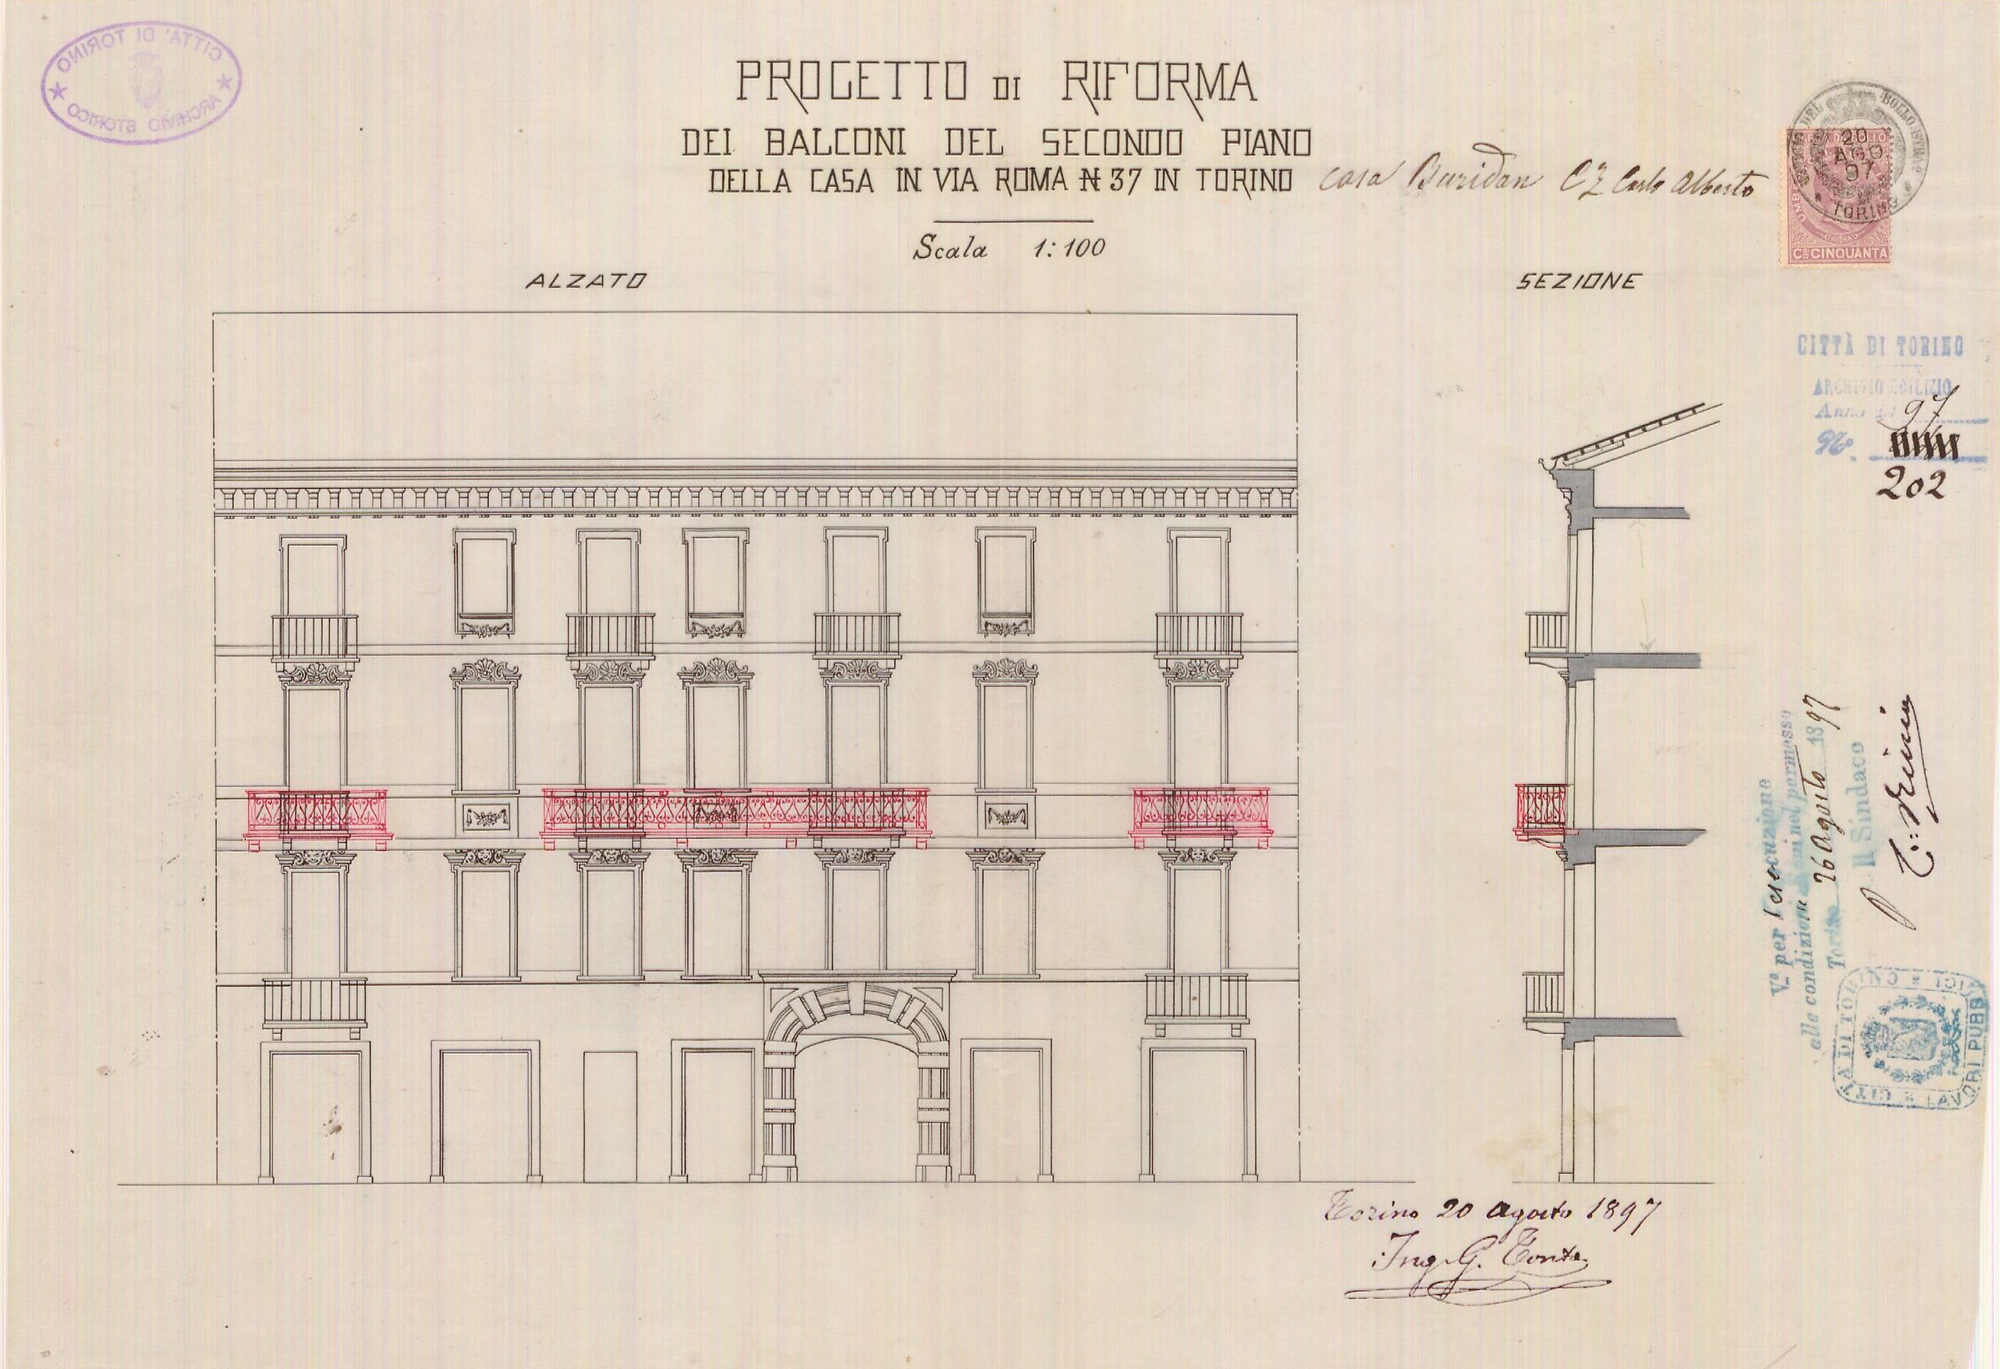 CITTA' DI TORINO
ARCHIVIO STORICO
PROGETTO DI RIFORMA
DEI BALCONI DEL SECONDO PIANO
DELLA CASA IN VIA ROMA N 37 IN TORINO casa Buridan Carlo Alberto
Scala 1:100
ALZATO
SEZIONE
BOLLO STRA
20
AGO
97
TORINO
CMI CINQUANTA
CITTÀ DI TORINO
ARCHIVIO EDILIZIO
Anno 97
No.
202
Vo. per l'esecuzione
alle condizioni nel permesso
Torino 26 Agosto 1897
Il Sindaco
CITTÀ DI TORINO
LAVORI PUBBLICI
Torino 20 agosto 1897
Ing. G.